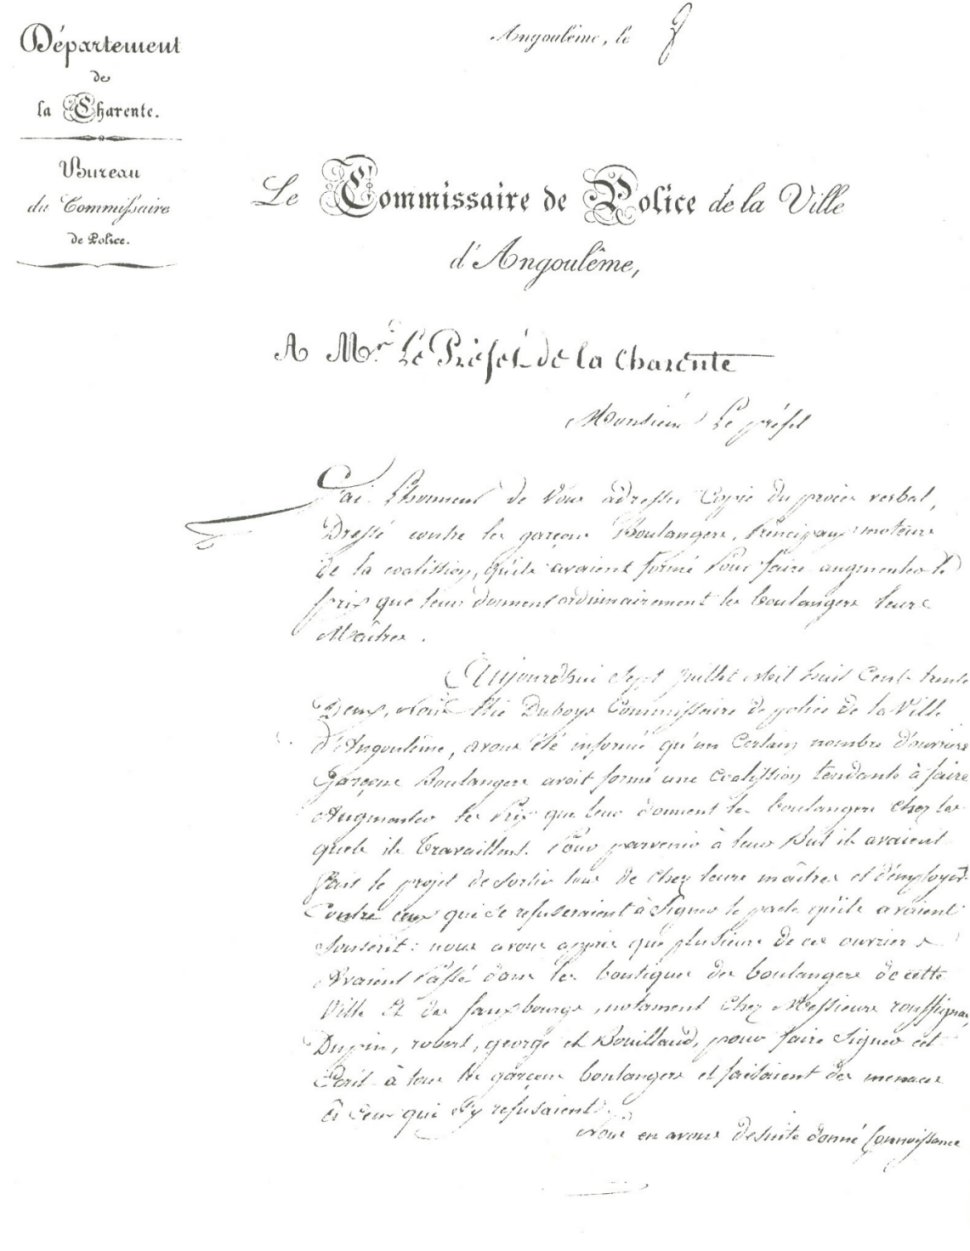 Département
de
la Charente.
Bureau
du Commissaire
de Police.
Angoulême, le
Le Commissaire de Police de la Ville
d'Angoulême,
A Mr. Le Préfet de la Charente
Monsieur Le préfet
J'ai l'honneur de Vous adresser Copie du procès verbal,
Dressé contre les garçons Boulangers, Principaux moteurs
de la coalission, qu'ils avaient formé Pour faire augmenter le
prix que leur donnent ordinairement les boulangers leurs
Maîtres.
Aujourdhui Sept juillet Mil huit Cent trente
Deux, Nous Duboys Commissaire de police de la Ville
d'Angoulême, avons été informé qu'un Certain nombre d'ouvriers
Garçons Boulangers avoit formé une Coalission tendante à faire
Augmenter les Prix que leur donnent les boulangers chez les
quels ils travaillent. Pour parvenir à leur But ils avaient
fait le projet de Sortir tous de chez leurs maîtres et d'employer
Contre ceux qui Se refuseraient à Signer le pacte qu'ils avaient
Souscrit : nous avons appris que plusieurs de ces ouvriers
Avaient Passé dans les boutiques des boulangers de cette
Ville Et des fauxbourgs, notament Chez Messieurs
Dupin, robert, george et Bouillaud, pour faire Signer cet
Ecrit à tous les garçons boulangers et faisaient des menaces
à Ceux qui S'y refusaient.
Nous en avons desuite donné Connoissance